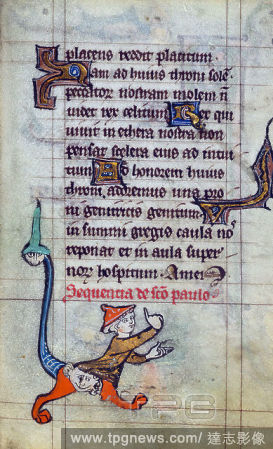 placens reddit placitum.
Nam ad huius throni sole
peccator nostram molem n
uidet rex celitum Per qui
uiuit in ethera nostra non
pensat scelera eius ad intui
tum Ad honorem huius
throni adoremus una pro
ni genitricis genitum Ut
in summi gregis caula no
reponat et in aula super
nor hospitum. Amen
Sequentia de sco paulo
TPG
www.tpgnews.com/達志影像